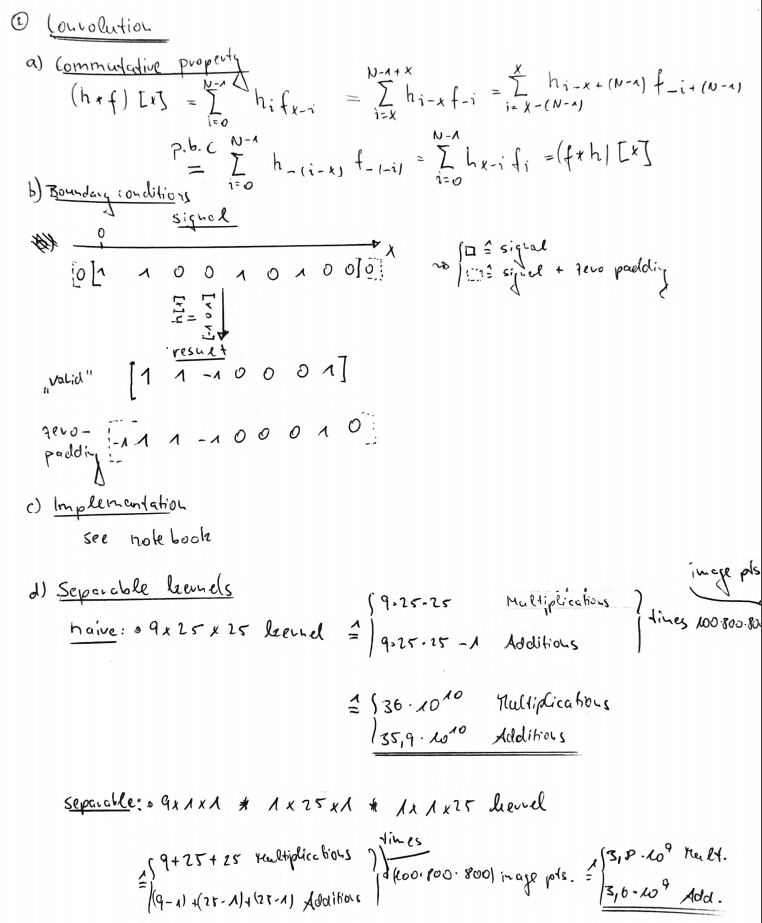 ① Convolution
a) Commutative property
(h*f)[x] = ∑_{i=0}^{N-1} h_i f_{x-i} = ∑_{i=x}^{N-1+x} h_{i-x} f_{-i} = ∑_{i=x-(N-1)}^{x} h_{i-x+(N-1)} f_{-i+(N-1)}
p.b.c = ∑_{i=0}^{N-1} h_{-(i-x)} f_{-(-i)} = ∑_{i=0}^{N-1} h_{x-i} f_i = (f*h)[x]
b) Boundary conditions
signal
0
x
[0[1 1 0 0 1 0 1 0 0]0]
⇝ { □ ≙ signal
⬚ ≙ signal + zero padding
h[x] = [1 0 -1]
result
„valid" [1 1 -1 0 0 0 1]
zero-padding [-1 1 1 -1 0 0 0 1 0]
c) Implementation
see notebook
d) Separable kernels
image pts
naive: • 9 x 25 x 25 kernel ≙ { 9·25·25 Multiplications
9·25·25 -1 Additions } times 100·800·80
≙ { 36·10^10 Multiplications
35,9·10^10 Additions
separable: • 9x1x1 * 1x25x1 * 1x1x25 kernel
≙ { 9+25+25 Multiplications
(9-1)+(25-1)+(25-1) Additions } times (100·800·800) image pts. ≙ { 3,8·10^9 Mult.
3,6·10^9 Add.